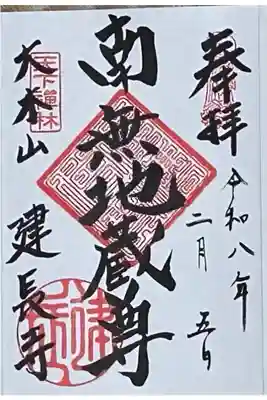 奉拝
令和八年
二月 五日
南無地蔵尊
天下禅林
大本山
建長寺